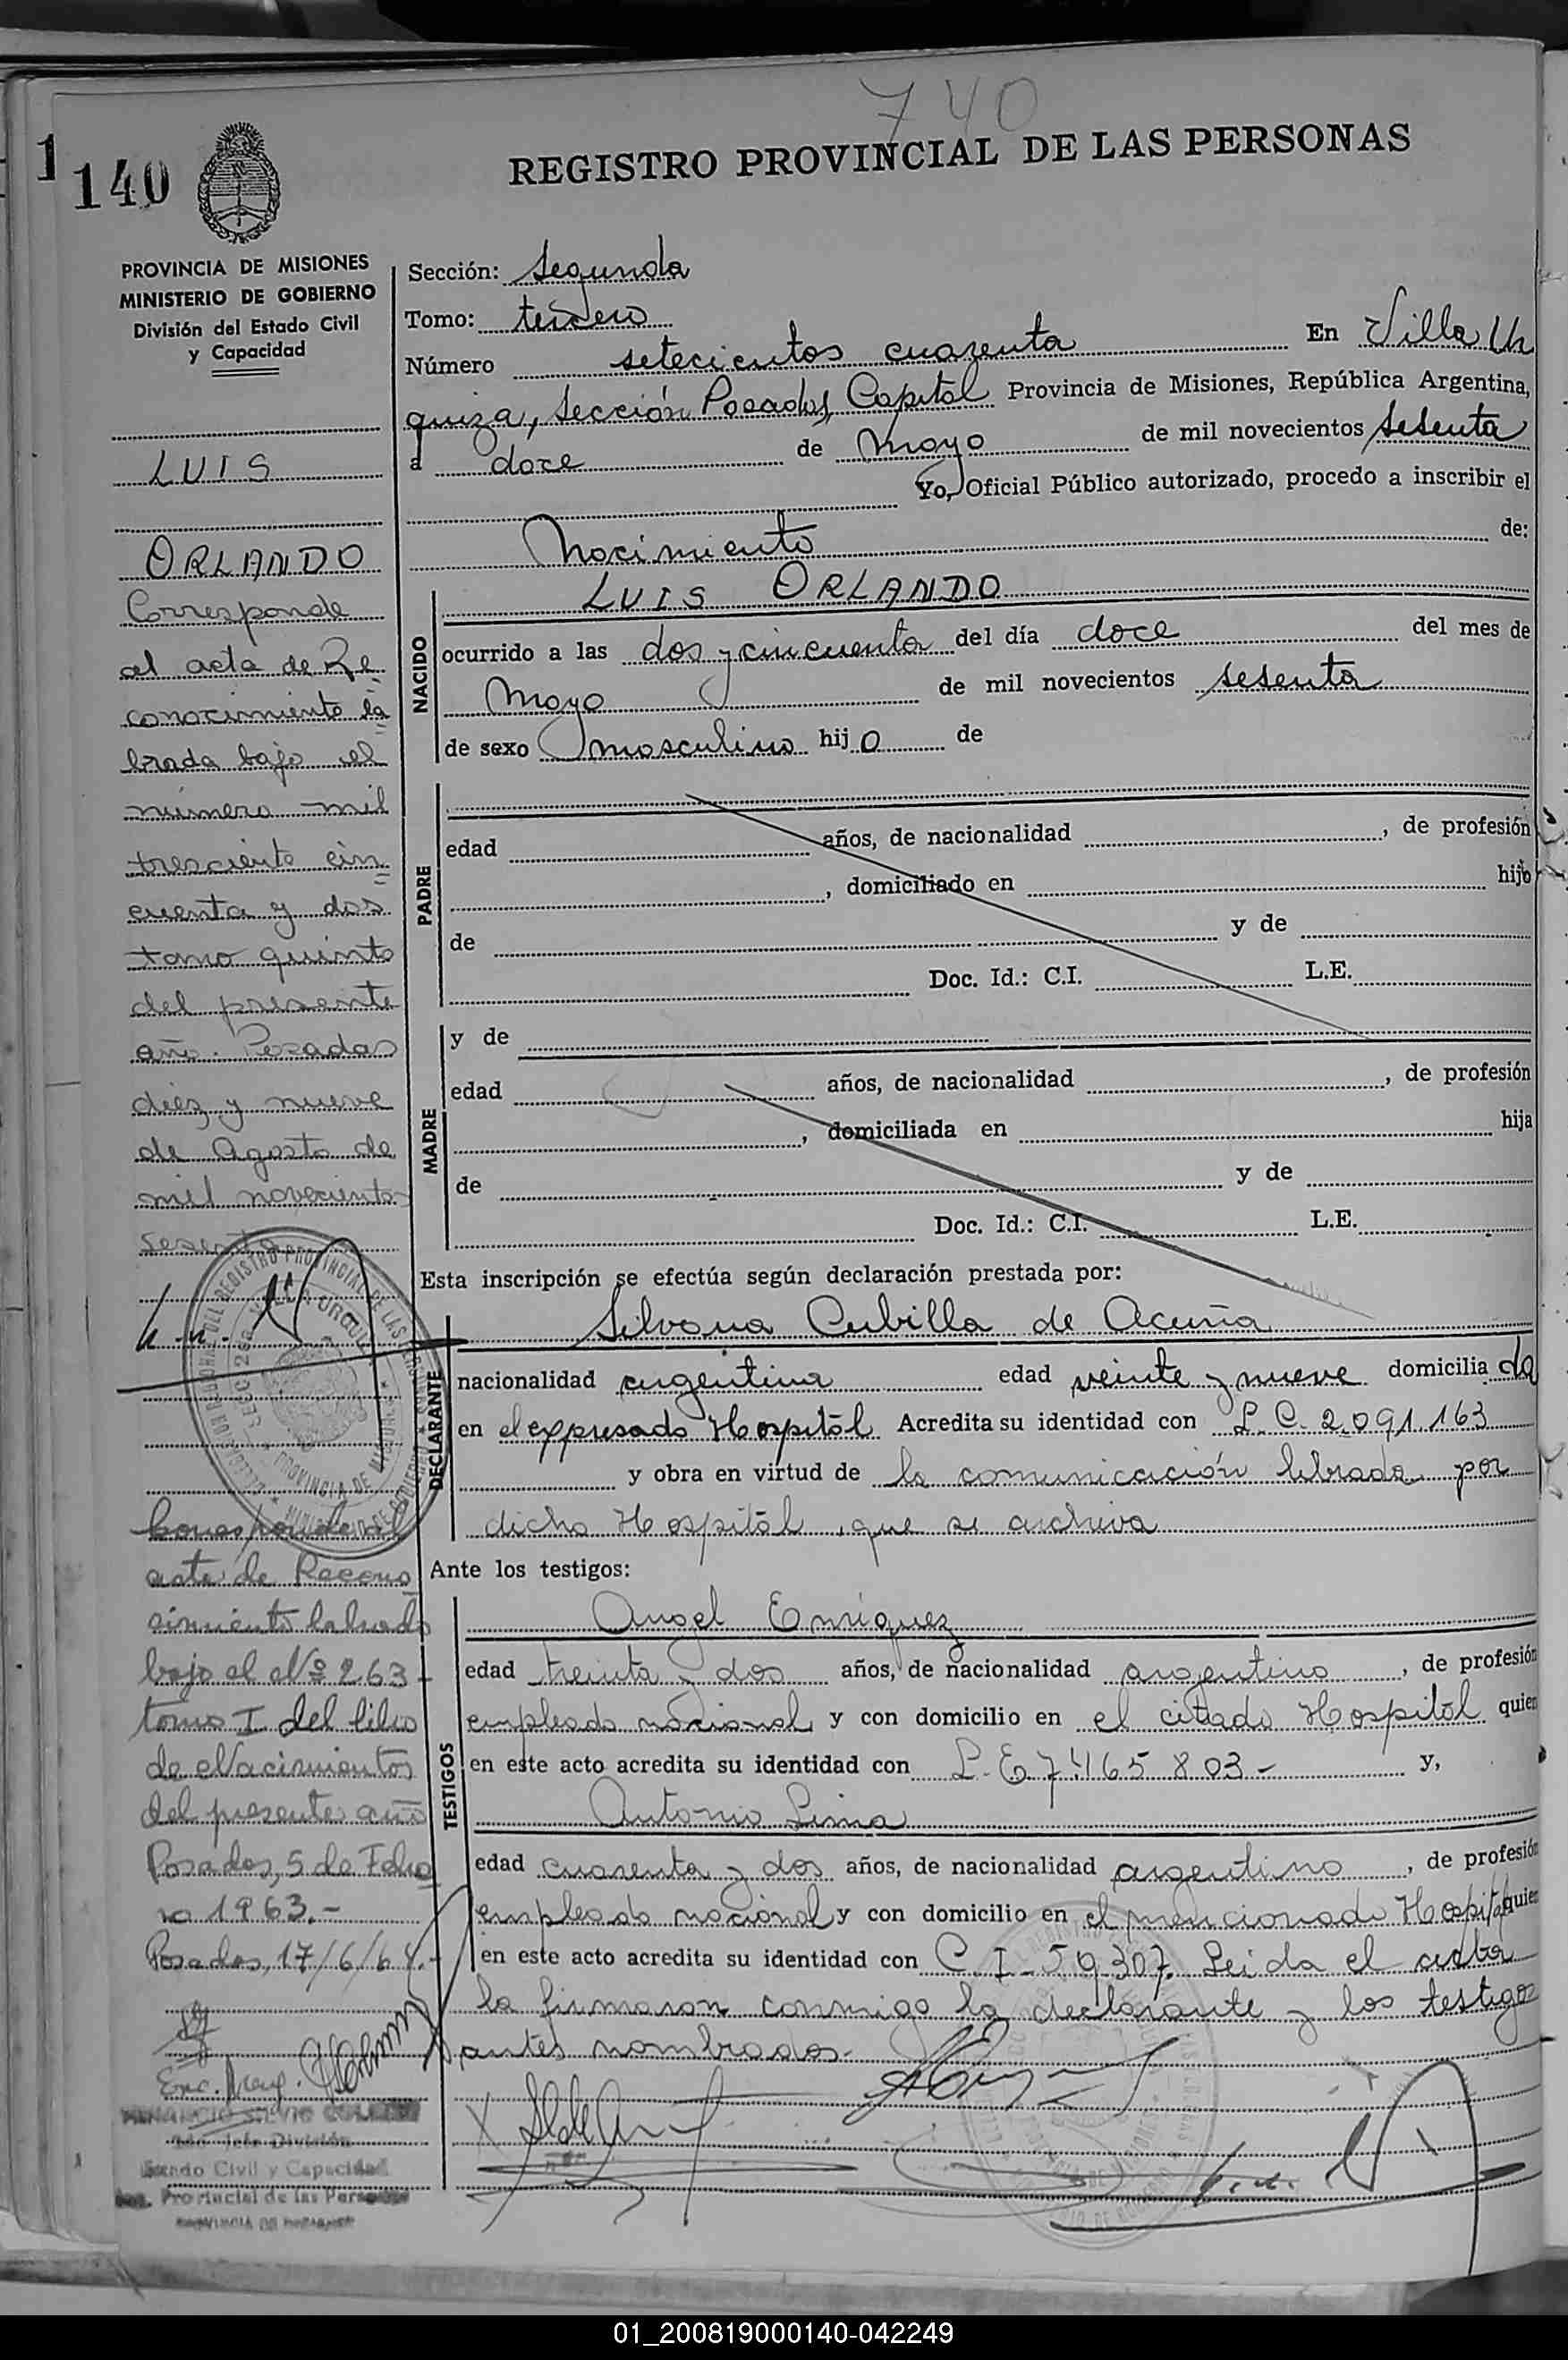 740
1
140
REGISTRO PROVINCIAL DE LAS PERSONAS
PROVINCIA DE MISIONES
MINISTERIO DE GOBIERNO
División del Estado Civil
y Capacidad
LUIS
ORLANDO
Corresponde
al acta de Re
conocimiento la
brada bajo el
número mil
tresciento cin
cuenta y dos
tomo quinto
del presente
año. Posadas
diez y nueve
de Agosto de
mil novecientos
sesenta
Corresponde al
acta de Recono
cimiento labrado
bajo el Nº 263-
tomo I del libro
de Nacimientos
del presente año
Posadas, 5 de Febre
ro 1963.-
Posadas, 17/6/64.-
Sección: Segunda
Tomo: tercero
Número setecientos cuarenta En Villa Ur
quiza, Sección Posadas, Capital Provincia de Misiones, República Argentina,
a doce de Mayo de mil novecientos sesenta
Yo, Oficial Público autorizado, procedo a inscribir el
Nacimiento de:
NACIDO
LUIS ORLANDO
ocurrido a las dos y cincuenta del día doce del mes de
Mayo de mil novecientos sesenta
de sexo masculino hijo de
PADRE
edad años, de nacionalidad , de profesión
, domiciliado en hijo
de y de
Doc. Id.: C.I. L.E.
MADRE
y de
edad años, de nacionalidad , de profesión
, domiciliada en hija
de y de
Doc. Id.: C.I. L.E.
Esta inscripción se efectúa según declaración prestada por:
DECLARANTE
Silvana Cubilla de Acuña
nacionalidad argentina edad veinte y nueve domiciliada
en el expresado Hospital Acredita su identidad con L.C. 2.091.163
y obra en virtud de la comunicación librada por
dicho Hospital, que se archiva
Ante los testigos:
TESTIGOS
Angel Enriquez
edad treinta y dos años, de nacionalidad argentino , de profesión
empleado nacional y con domicilio en el citado Hospital quien
en este acto acredita su identidad con L.E 7.465.803- y,
Antonio Lima
edad cuarenta y dos años, de nacionalidad argentino , de profesión
empleado nacional y con domicilio en el mencionado Hospital quien
en este acto acredita su identidad con C.I-59.307. Leida el acta
la firmaron conmigo la declarante y los testigos
antes nombrados.-
Estado Civil y Capacidad
Reg. Provincial de las Personas
01_200819000140-042249